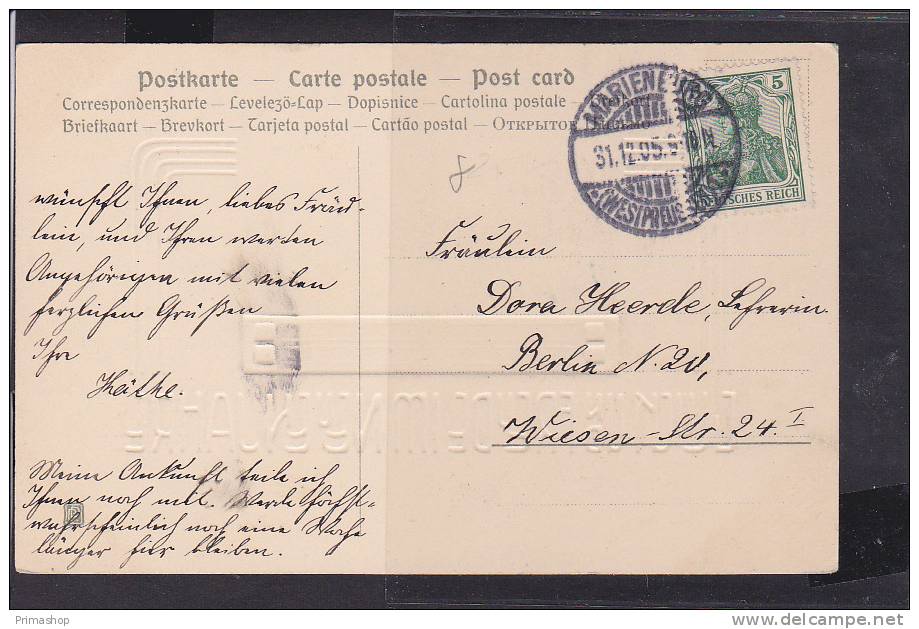 Postkarte — Carte postale — Post card
Correspondenzkarte – Levelező-Lap – Dopisnice – Cartolina postale –
Briefkaart – Brevkort – Tarjeta postal – Cartão postal – ОТКРЫТОЕ
MARIENBURG
31.12.05.
(WESTPREUSSEN)
5
DEUTSCHES REICH
8
wünscht Ihnen, liebes Fräu-
lein, und Ihren werten
Angehörigen mit vielen
herzlichen Grüßen
Ihre
Käthe.
Meine Ankunft teile ich
Ihnen noch mit. Werde höchst-
wahrscheinlich noch eine Woche
länger hier bleiben.
Fräulein
Dora Heerde, Lehrerin
Berlin N. 20,
Wiesen-Str. 24. I
Primashop
delcampe.net